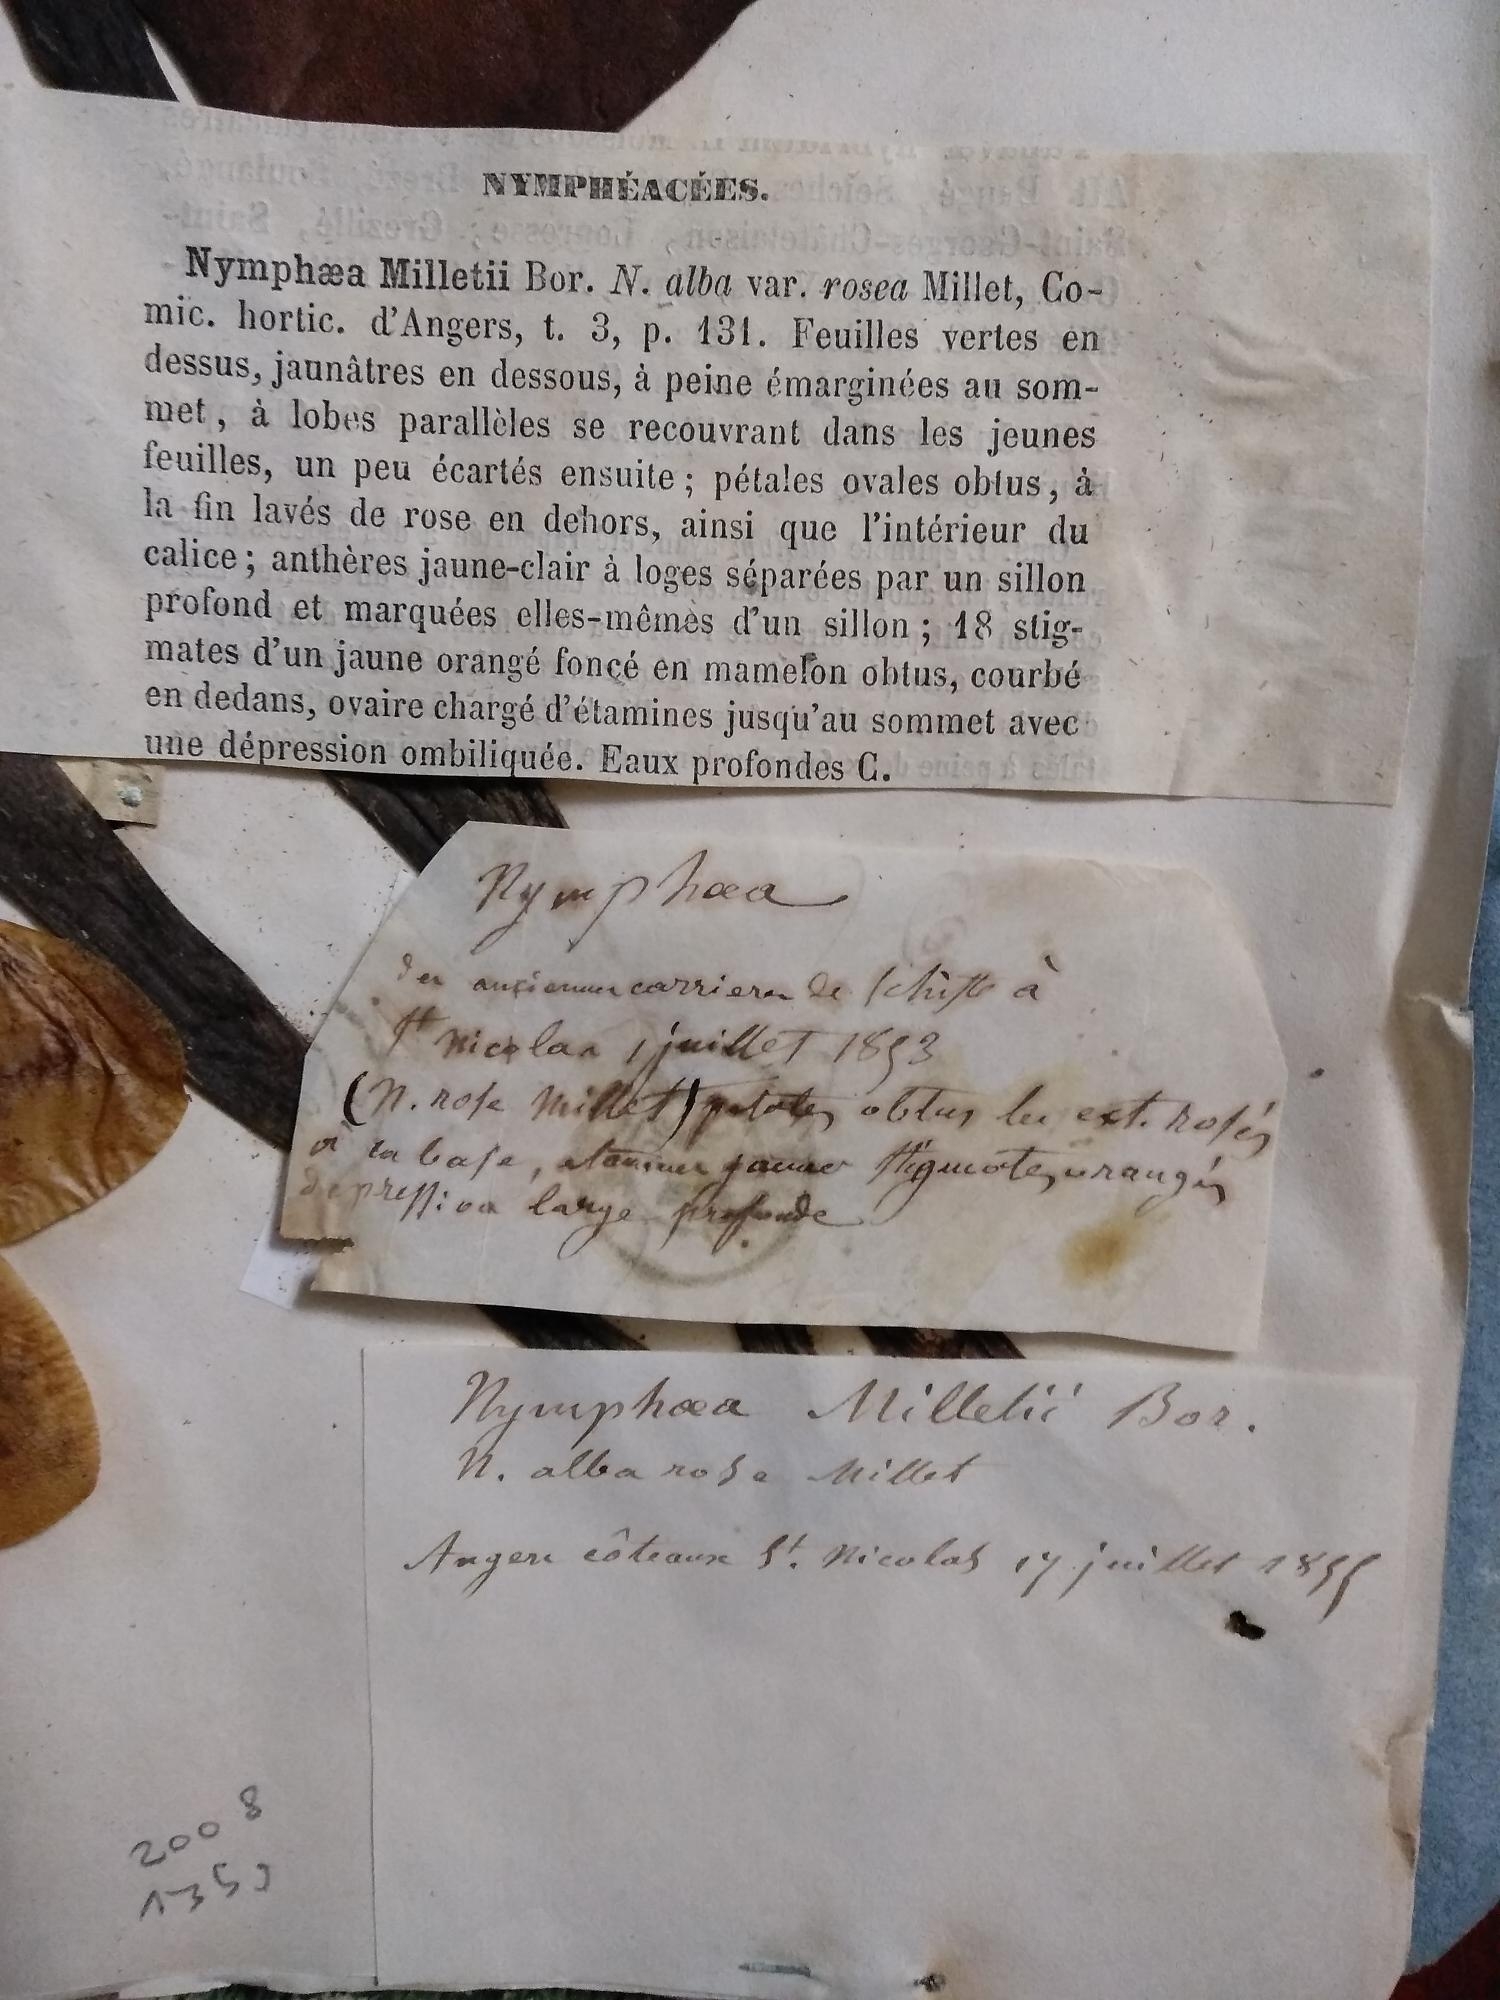 NYMPHÉACÉES.
Nymphæa Milletii Bor. N. alba var. rosea Millet, Co-
mic. hortic. d'Angers, t. 3, p. 131. Feuilles vertes en
dessus, jaunâtres en dessous, à peine émarginées au som-
met, à lobes parallèles se recouvrant dans les jeunes
feuilles, un peu écartés ensuite; pétales ovales obtus, à
la fin lavés de rose en dehors, ainsi que l'intérieur du
calice; anthères jaune-clair à loges séparées par un sillon
profond et marquées elles-mêmes d'un sillon; 18 stig-
mates d'un jaune orangé foncé en mamelon obtus, courbé
en dedans, ovaire chargé d'étamines jusqu'au sommet avec
une dépression ombiliquée. Eaux profondes C.
Nymphæa
des anciennes carrieres de schiste à
St Nicolas 1 juillet 1853
(N. rose Millet) petales obtus les ext. rosés
à la base, etamines jaunes stigmates orangés
depression large profonde
Nymphæa Milletii Bor.
N. alba rosea Millet
Angers côteaux St. Nicolas 17 juillet 1855
2008